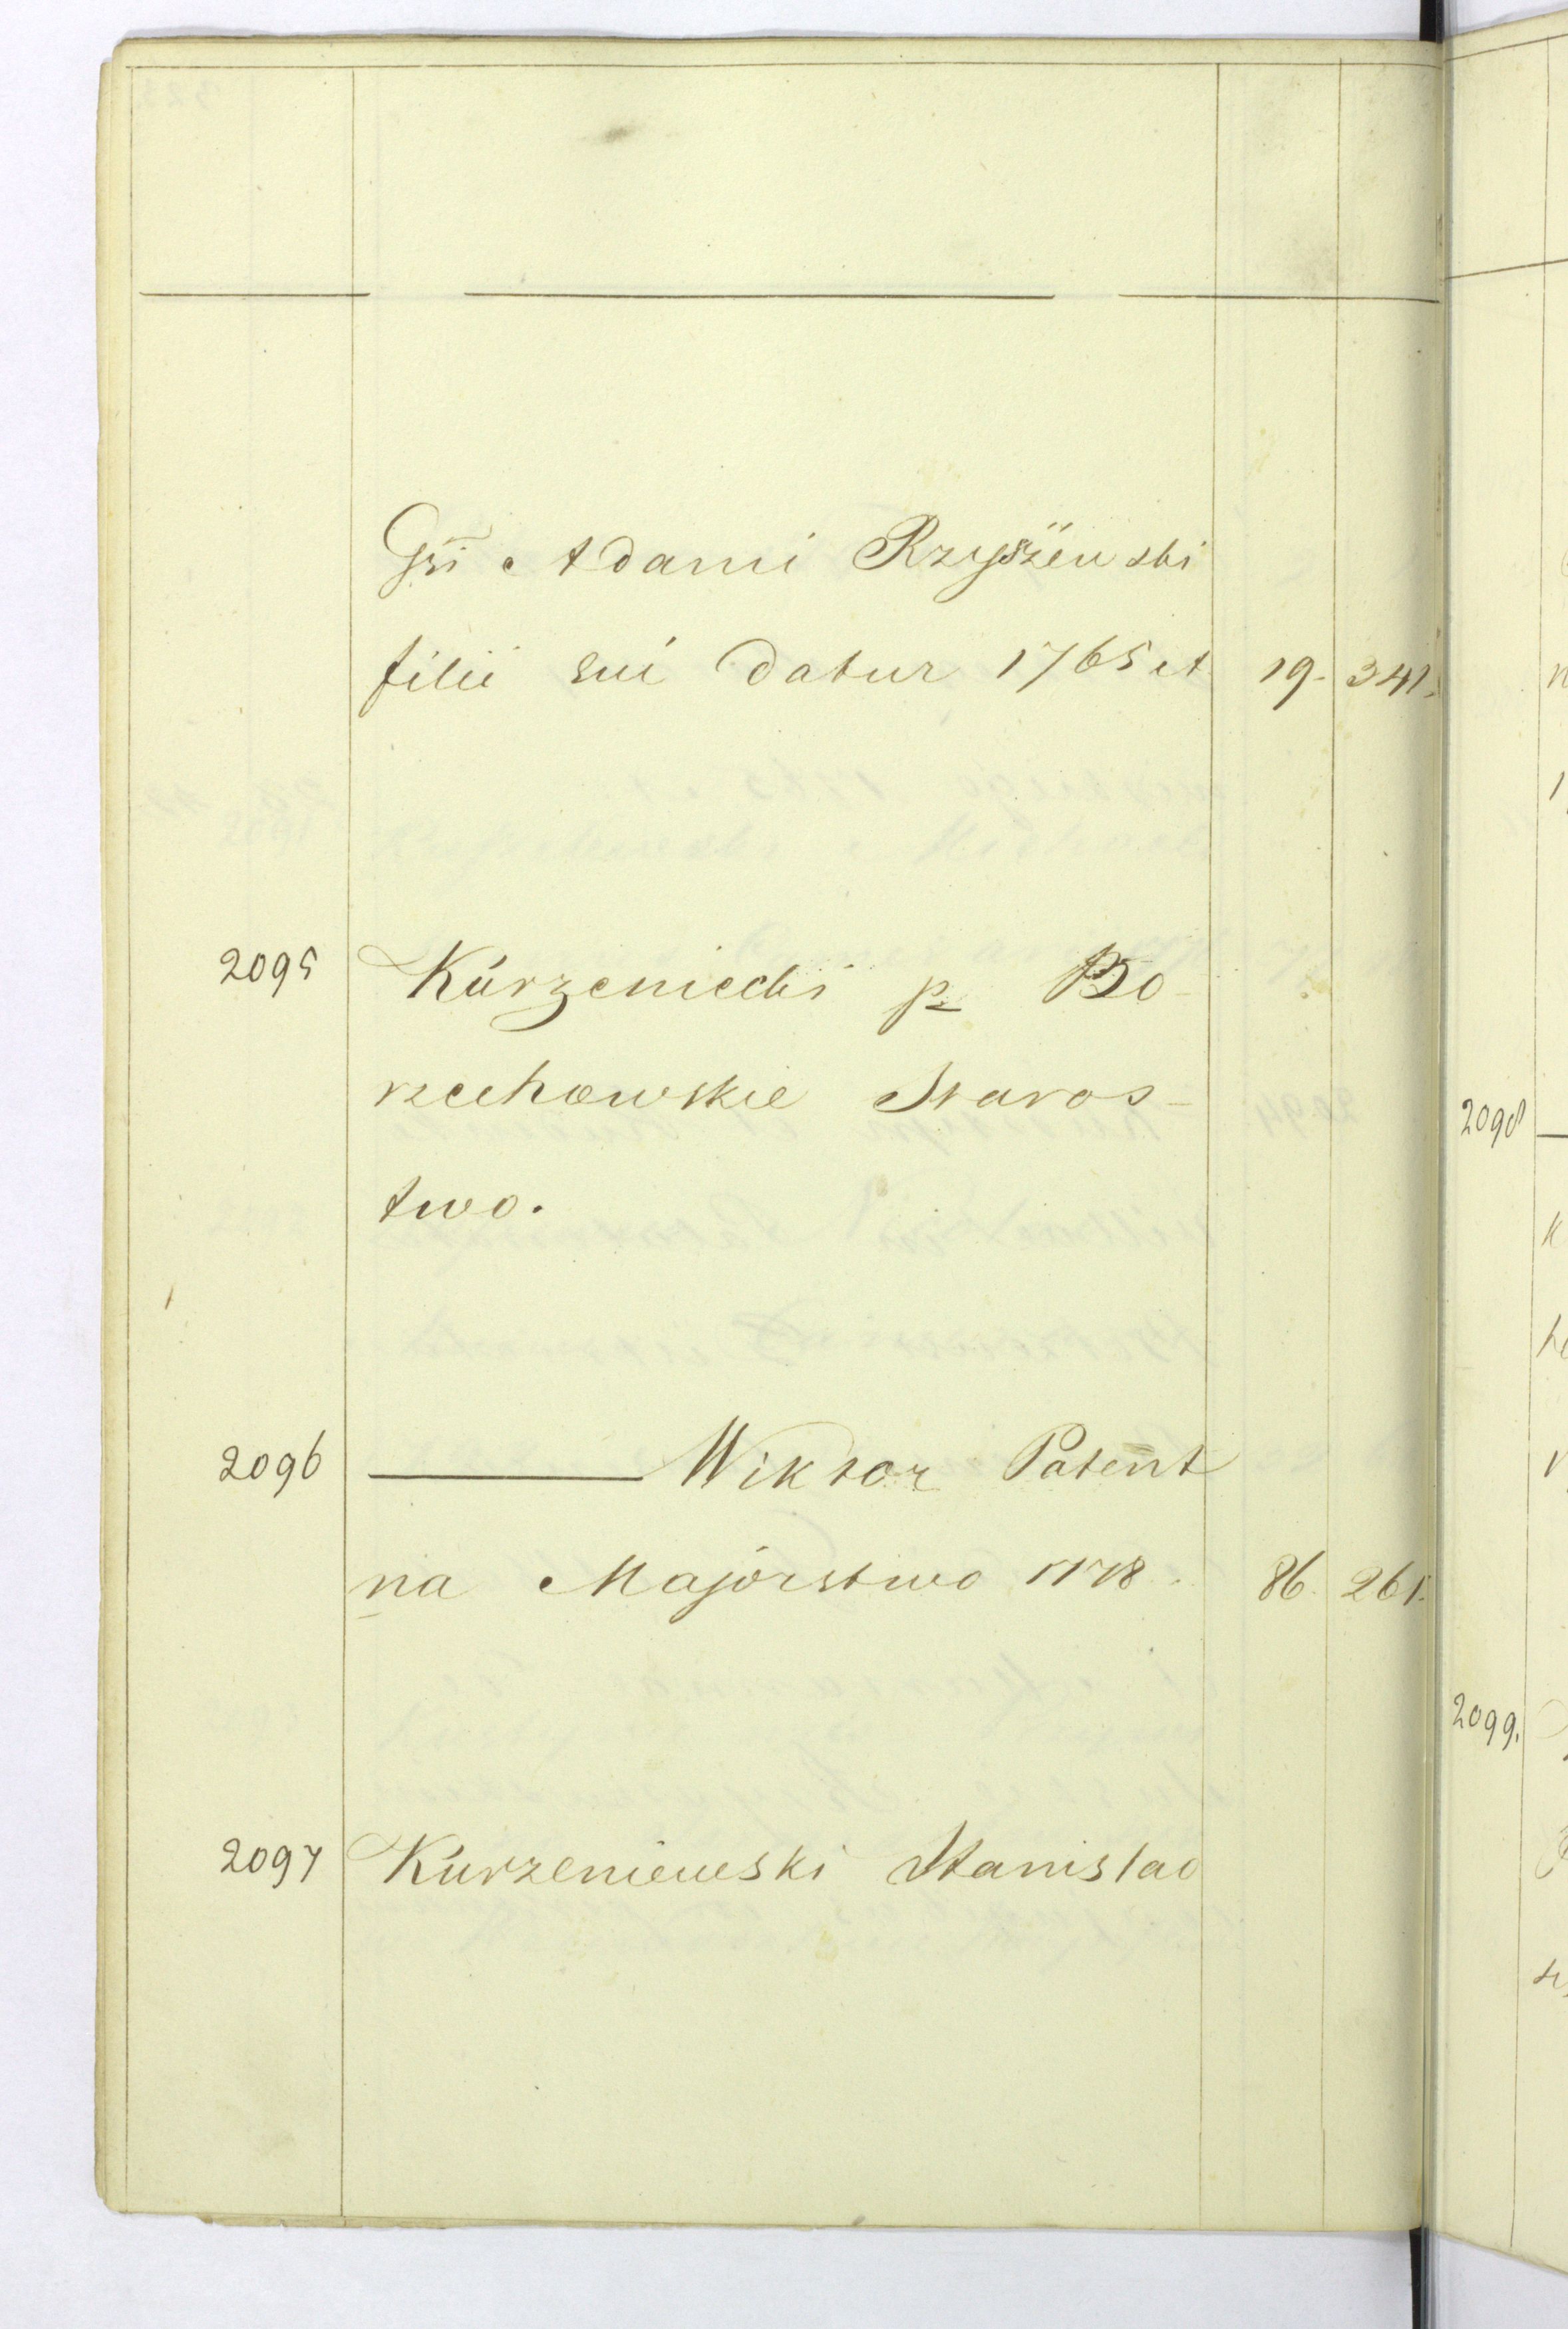 Gsi Adami Rzyszewski
filii sui datur 1765 et 19. 341.
2095 Kurzeniecki p. Bo-
rzechowskie Staros-
two.
2096 ——— Wiktor Patent
na Majorstwo 1778. 86. 261.
2097 Kurzeniewski Stanislao
2098
2099.